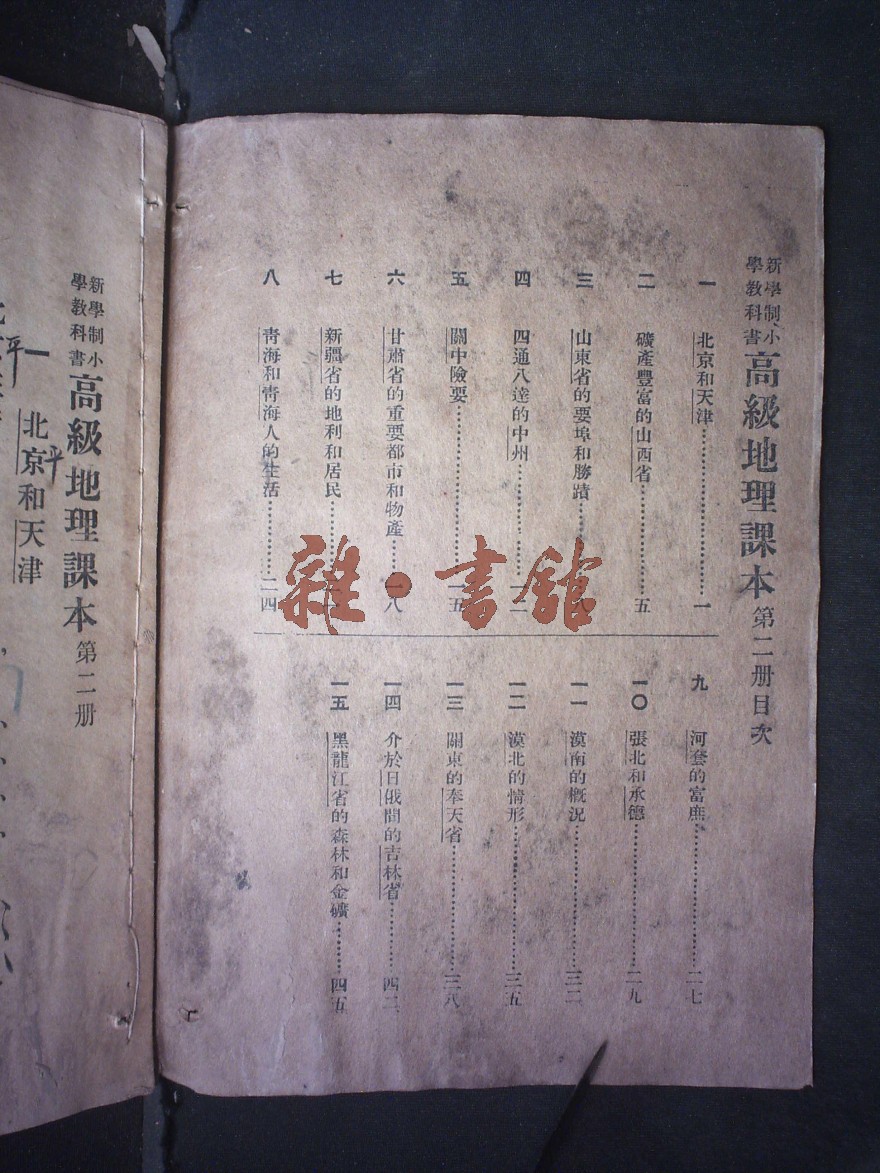 新學制小學教科書高級地理課本第二册目次
一 北京和天津…………一
二 礦產豐富的山西省…………五
三 山東省的要埠和勝蹟…………八
四 四通八達的中州…………一二
五 關中險要…………一五
六 甘肅省的重要都市和物產……一八
七 新疆省的地利和居民…………
八 青海和青海人的生活…………二四
九 河套的富庶…………二七
一〇 張北和承德…………二九
一一 漠南的概況…………三二
一二 漠北的情形…………三五
一三 關東的奉天省…………三八
一四 介於日俄間的吉林省…………四二
一五 黑龍江省的森林和金礦………四五
雜·書館
新學制小學教科書高級地理課本第二册
一 北京和天津
平
平